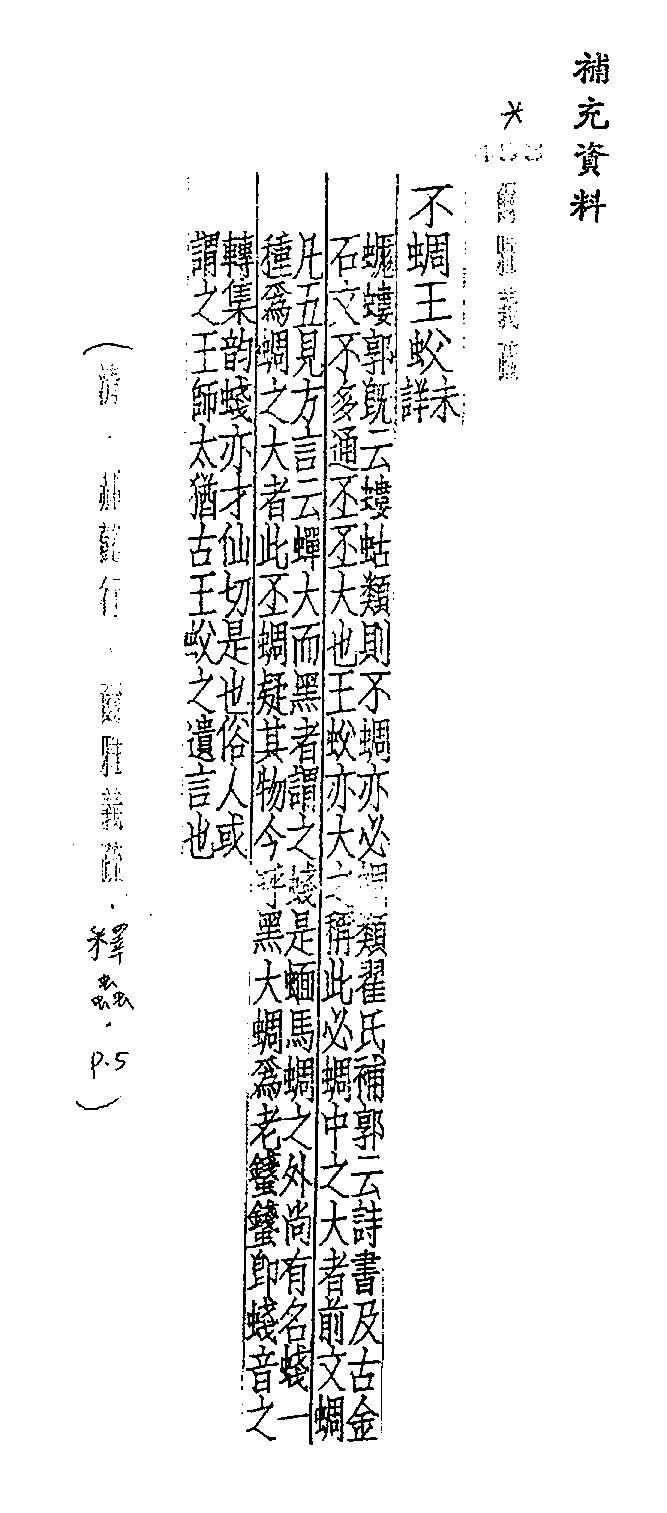 補充資料
*
爾雅義疏
不蜩王蚥未
詳
蝘螻郭旣云螻蛄類則不蜩亦必蜩類翟氏補郭云詩書及古金
石文不多通丕丕大也王蚥亦大之稱此必蜩中之大者前文蜩
凡五見方言云蟬大而黑者謂之䗃是蝒馬蜩之外尚有名䗃一
種爲蜩之大者此丕蜩疑其物今呼黑大蜩爲老䥯䥯卽䗃音之
轉集韵䗃亦才仙切是也俗人或
謂之王師太猶古王蚥之遺言也
(清.郝懿行.爾雅義疏.釋蟲.P.5)